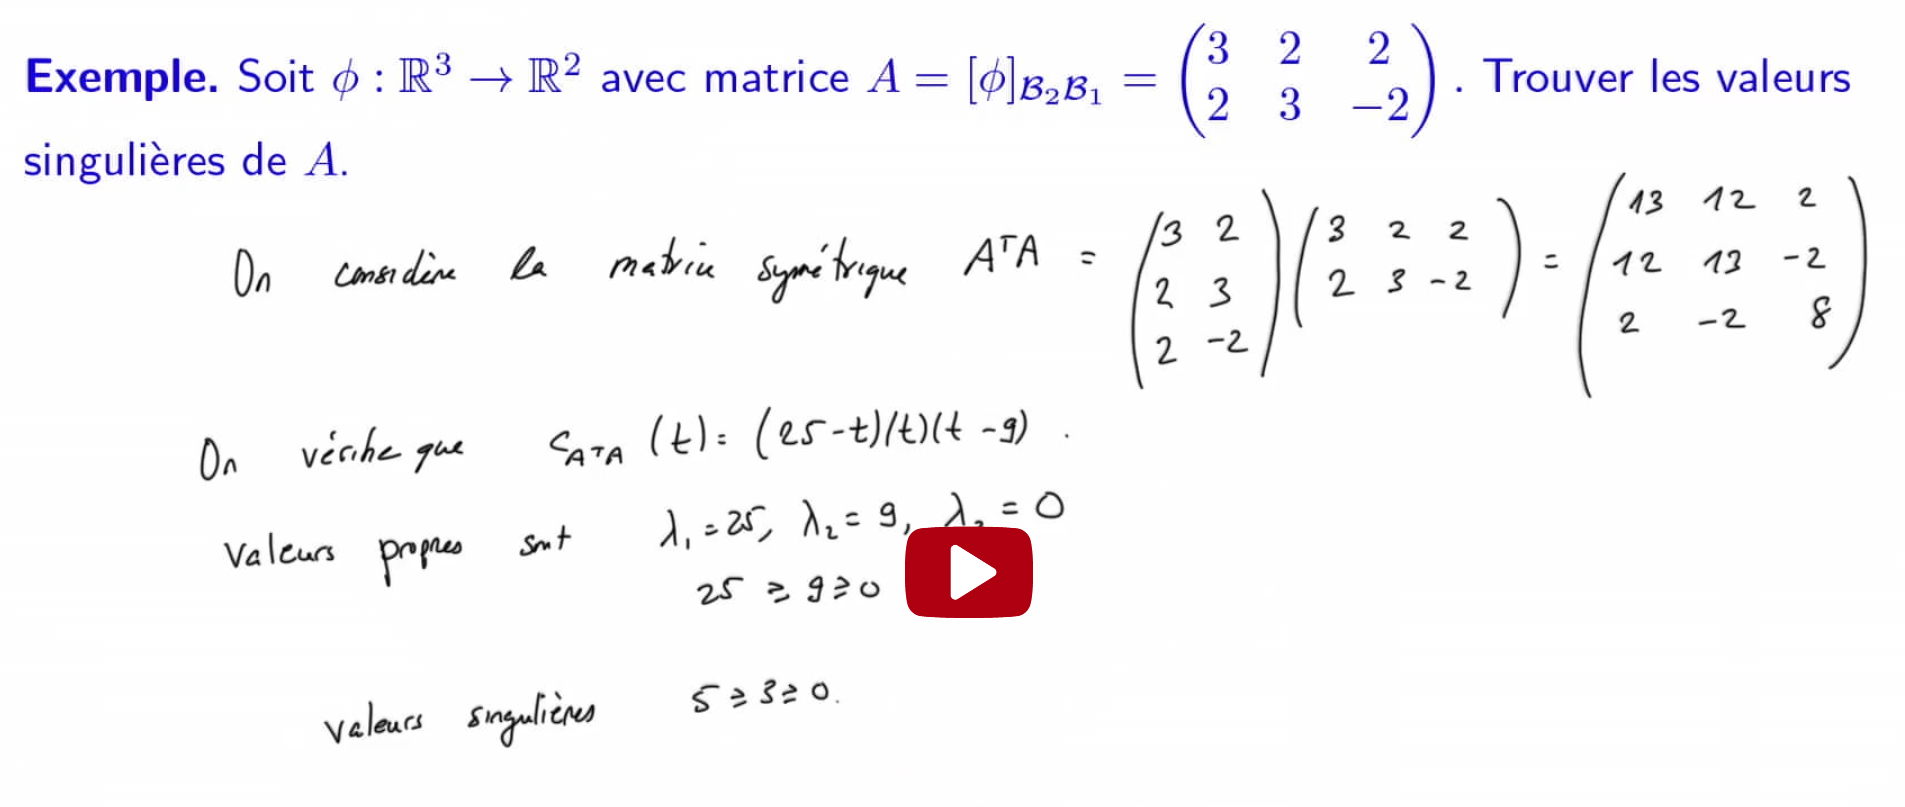 Exemple. Soit ϕ : ℝ³ → ℝ² avec matrice A = [ϕ]_{B₂B₁} = (3 2 2; 2 3 −2). Trouver les valeurs
singulières de A.
On considère la matrice symétrique AᵀA = (3 2; 2 3; 2 −2)(3 2 2; 2 3 −2) = (13 12 2; 12 13 −2; 2 −2 8)
On vérifie que c_{AᵀA}(t) = (25−t)(t)(t−9).
Valeurs propres sont λ₁ = 25, λ₂ = 9, λ₃ = 0
25 ≥ 9 ≥ 0
Valeurs singulières 5 ≥ 3 ≥ 0.